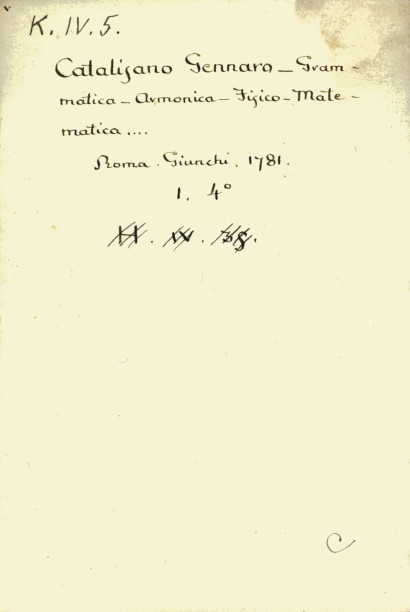 K. IV. 5.
Catalisano Gennaro – Gram-
matica – Armonica – Fisico – Mate-
matica ....
Roma. Giunchi. 1781.
1. 4°
XX. XVI.
C